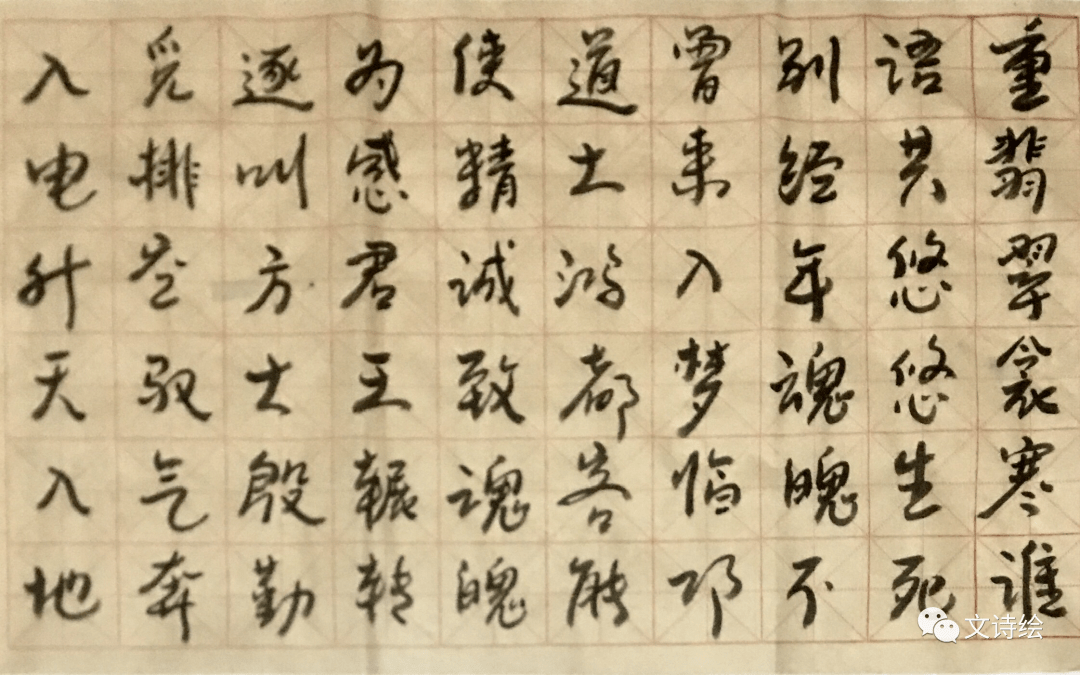 重翡翠衾寒谁
语共悠悠生死
别经年魂魄不
曾来入梦临邛
道士鸿都客能
使精诚致魂魄
为感君王辗转
逐叫方士殷勤
觅排空驭气奔
入电升天入地
文诗绘